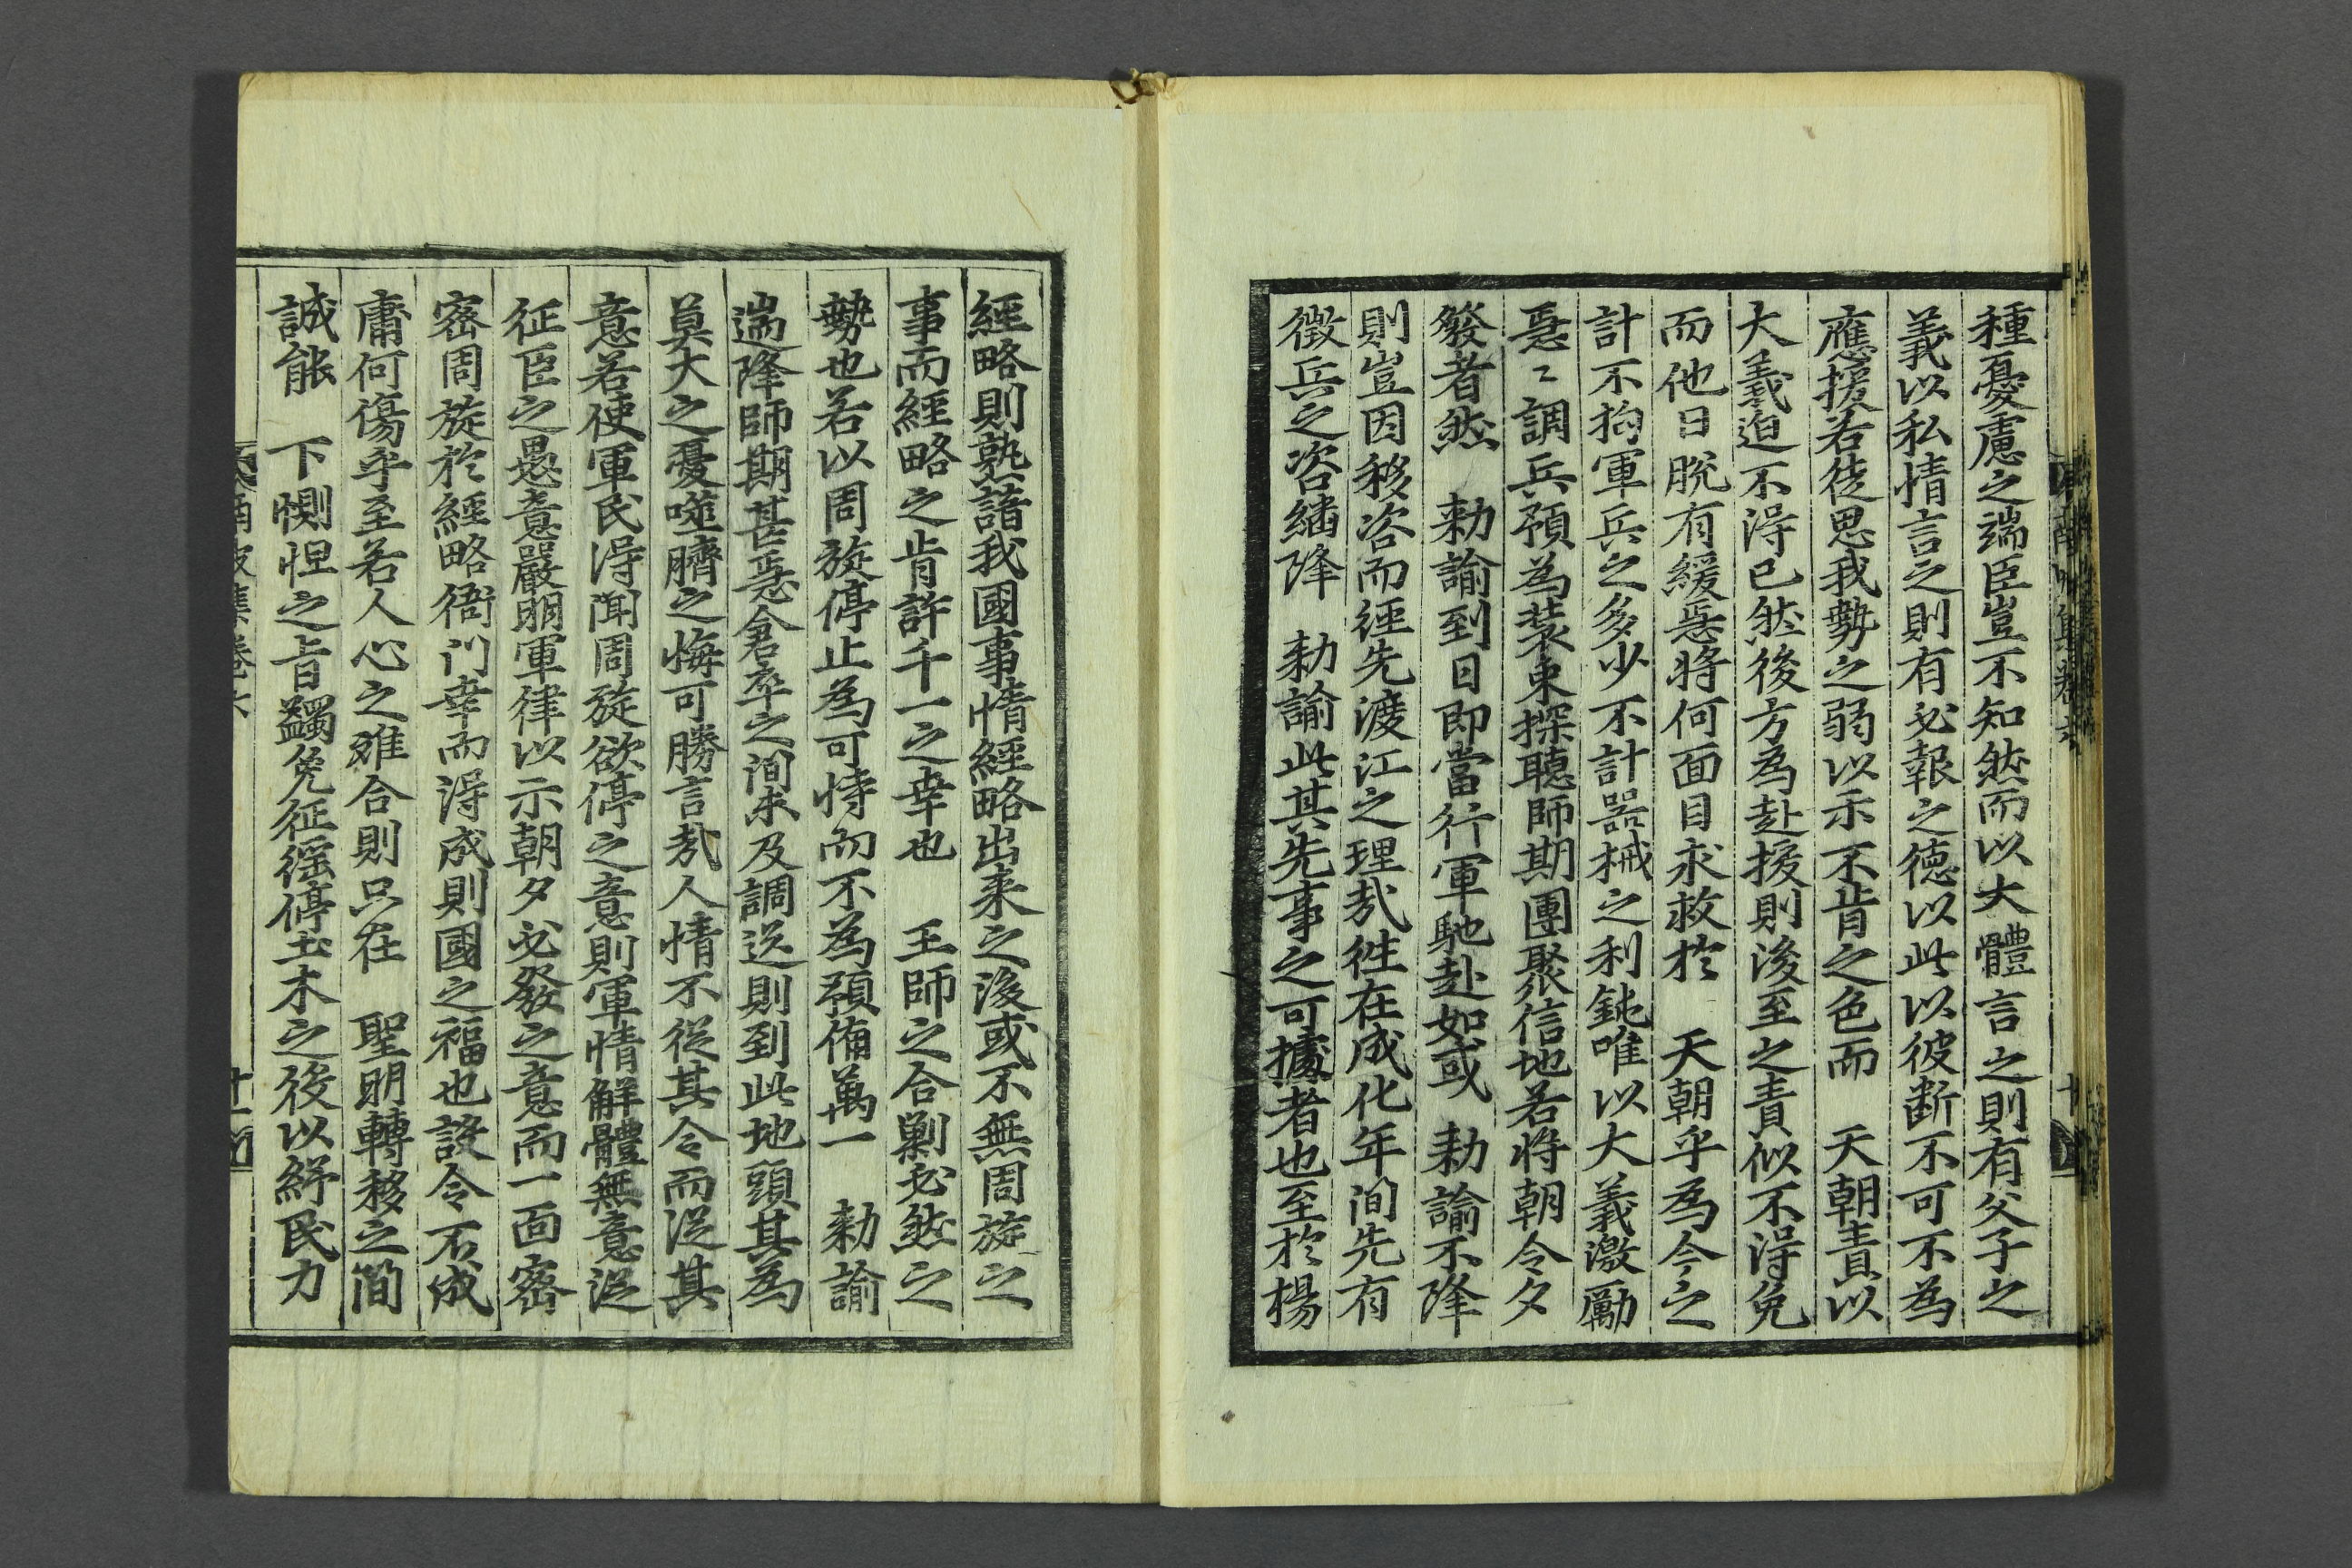 種憂慮之端臣豈不知然而以大體言之則有父子之
義以私情言之則有必報之德以此以彼斷不可不爲
應援若徒思我勢之弱以示不肯之色而　天朝責以
大義迫不得已然後方爲赴援則後至之責似不得免
而他日脫有緩急將何面目求救於　天朝乎爲今之
計不拘軍兵之多少不計器械之利鈍唯以大義激勵
急〻調兵預爲裝束探聽師期團聚信地若將朝令夕
發者然　勑諭到日卽當行軍馳赴如或　勑諭不降
則豈因移咨而經先渡江之理㢤徃在成化年間先有
徵兵之咨繼降　勑諭此其先事之可據者也至於楊
經略則熟諳我國事情經略出來之後或不無周旋之
事而經略之肯許千一之幸也　王師之合剿必然之
勢也若以周旋停止爲可恃而不爲預備萬一　勑諭
遄降師期甚急倉卒之間未及調送則到此地頭其爲
莫大之憂噬臍之悔可勝言㢤人情不從其令而從其
意若使軍民得聞周旋欲停之意則軍情解體無意從
征臣之愚意嚴明軍律以示朝夕必發之意而一面密
密周旋於經略衙門幸而得成則國之福也設令不成
庸何傷乎至若人心之难合則只在　聖明轉移之間
誠能　下惻怛之旨蠲免征徭停土木之役以紓民力